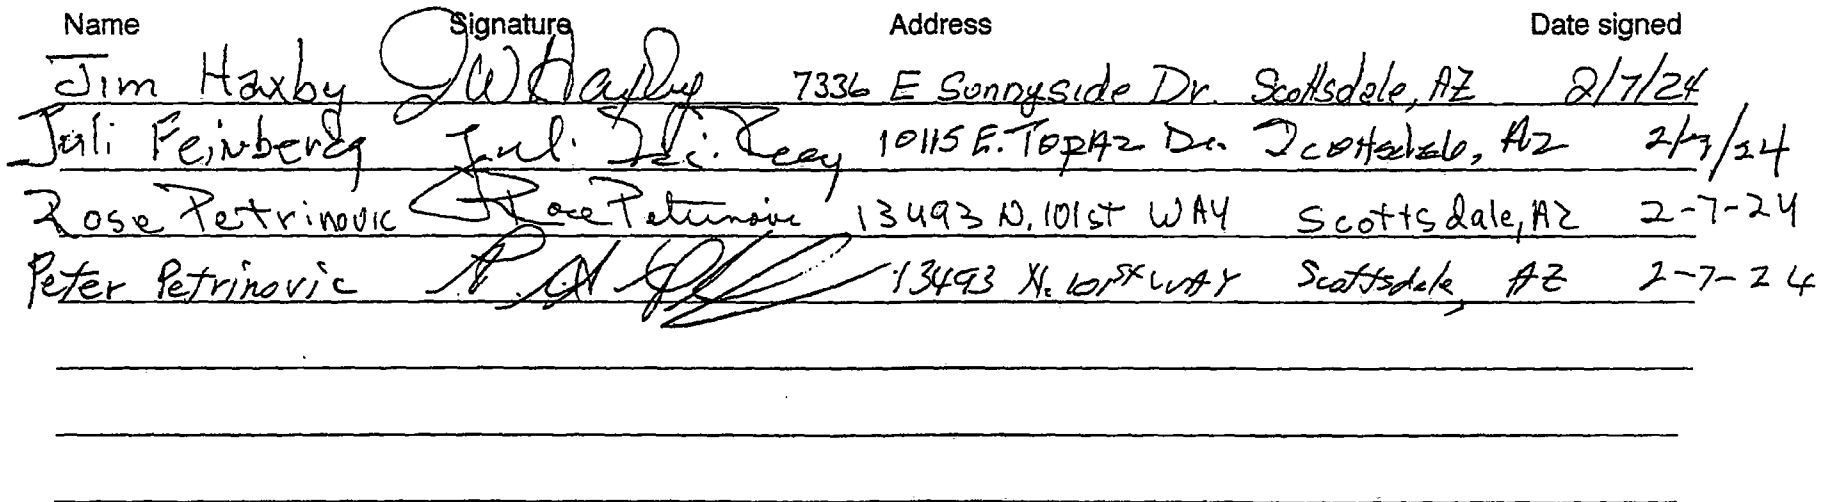 Name Signature Address Date signed
Jim Haxby JW Haxby 7336 E Sunnyside Dr. Scottsdale, AZ 2/7/24
Juli Feinberg Juli 10115 E. TOPAZ Dr. Scottsdale, AZ 2/7/24
Rose Petrinovic Rose Petrinovic 13493 N. 101st WAY Scottsdale, AZ 2-7-24
Peter Petrinovic 13493 N. 101st WAY Scottsdale, AZ 2-7-24